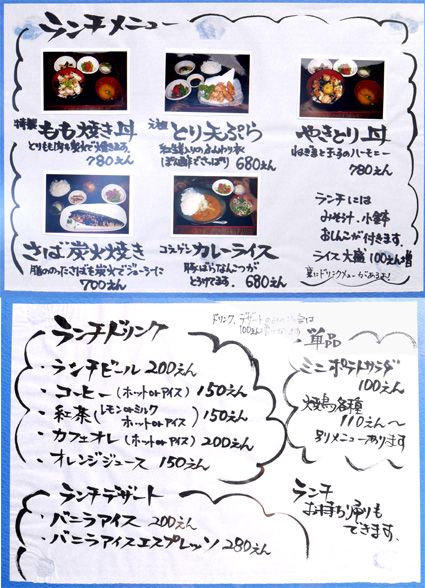 ランチメニュー
特製 もも焼き丼
とりもも肉を炭火で焼きます。
780えん
元祖 とり天ぷら
紅生姜入りのふんわり衣
ぽん酢でさっぱり 680えん
やきとり丼
ねぎまと玉子のハーモニー
780えん
さば炭火焼き
脂ののったさばを炭火でジューシーに
700えん
コラーゲン カレーライス
豚ばらなんこつが
とろけてます。 680えん
ランチには
みそ汁、小鉢
おしんこが付きます。
ライス大盛 100えん増
裏にドリンクメニューがあるよ!
ランチドリンク
・ランチビール 200えん
・コーヒー (ホットorアイス) 150えん
・紅茶 (レモンorミルク ホットorアイス) 150えん
・カフェオレ (ホットorアイス) 200えん
・オレンジジュース 150えん
ランチデザート
・バニラアイス 200えん
・バニラアイスエスプレッソ 280えん
ドリンク、デザートのみの場合は
100えん増
単品
ミニポテトサラダ
100えん
焼鳥各種
110えん〜
別メニューあります
ランチ
お持ち帰りも
できます。